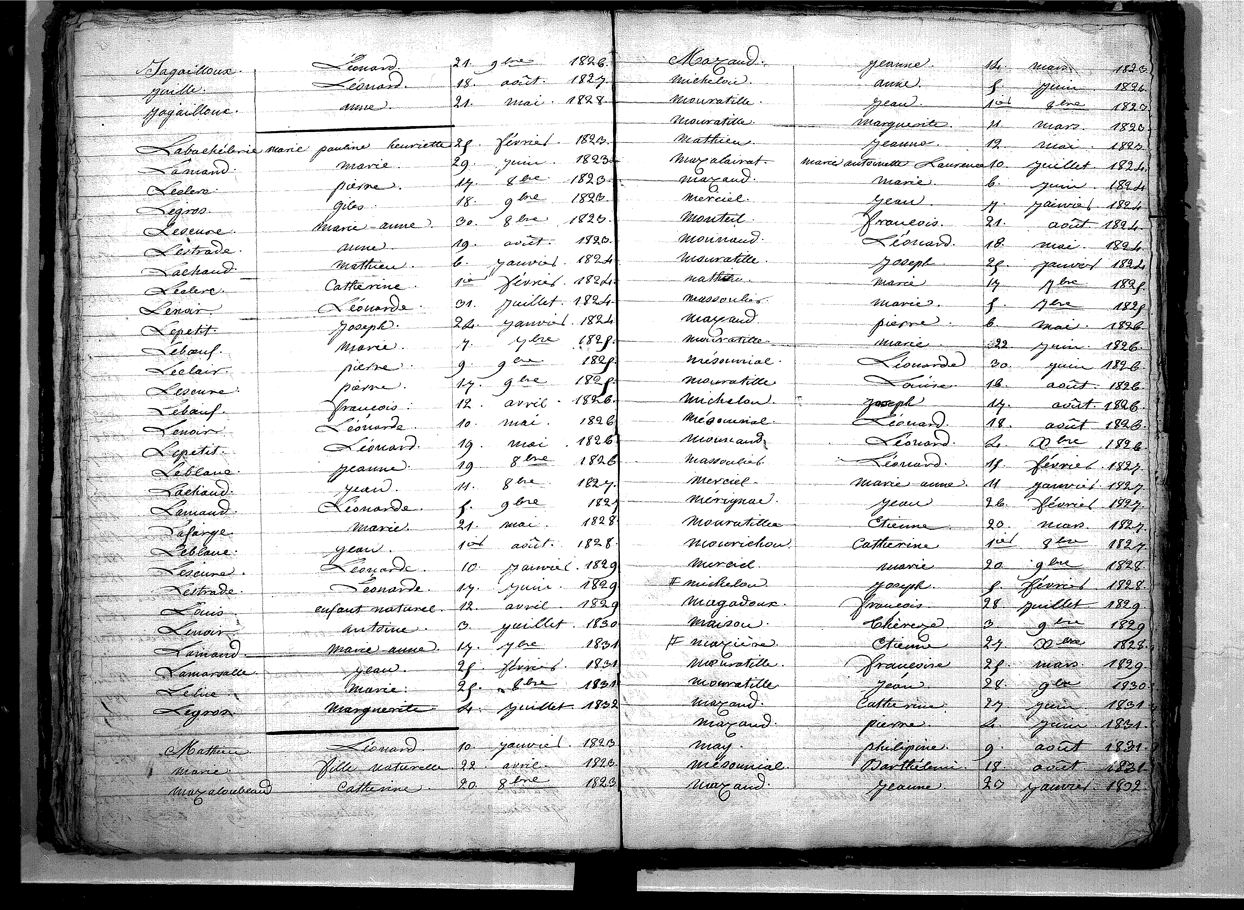 Jagailloux. Léonard 21. 9bre 1826.
Juille. Léonard. 18. août. 1827.
Jagailloux. anne. 21. mai. 1828.
Labachélerie marie pauline henriette 25. février. 1823.
Lamaud. marie. 29. juin. 1823.
Leclerc. pierre. 17. 8bre 1823.
Legros. giles. 18. 9bre 1823.
Lescure. marie-anne. 30. 8bre 1823.
Lestrade. anne. 19. août. 1823.
Lachaud. mathieu. 6. janvier. 1824
Leclerc. Catherine. 1er février. 1824.
Lenoir. Léonarde. 31. juillet. 1824.
Lepetit. joseph. 24. janvier. 1824
Lebœuf. marie. 7. 7bre 1825.
Leclair. pierre. 9. 9bre 1825.
Lescure. pierre. 17. 9bre 1825.
Lebœuf. françois. 12. avril. 1826.
Lenoir. Léonarde. 10. mai. 1826.
Lepetit. Léonard. 19. mai 1826
Leblanc. jeanne. 19. 8bre 1826
Lachaud. jean. 11. 8bre 1827.
Lamaud. Léonarde 5. 9bre 1827
Lafarge. marie. 21. mai. 1828.
Leblanc. jean. 1er août. 1828.
Lescure. Léonarde. 10. janvier. 1829
Lestrade. Léonarde. 17. juin. 1829
Louis. enfant naturel. 12. avril. 1829
Lenoir. antoine. 3. juillet. 1830
Lamaud. marie-anne. 17. 7bre 1831
Lamarsalle jean. 25. février. 1831.
marie. 25. 8bre 1831
Legros. marguerite 4. juillet. 1832
Mathieu Léonard. 10. janvier. 1823.
marie. fille naturelle 22. avril. 1823.
mazaloubeaud Catherine. 20. 8bre 1823
Mazaud. jeanne. 14. mars. 1823.
michelou. anne. 5. juin. 1823.
mouratille. jean. 1er 8bre 1823
mouratille. marguerite. 11. mars. 1823.
mathieu. jeanne. 12. mai. 1823.
mazalairat. marie antoinette Laurence 10. juillet 1824.
mazaud. marie. 6. juin. 1824
merciel. jean. 7. janvier. 1824
monteil. françois. 21. août 1824
mounaud. Léonard. 18. mai. 1824
mouratille. joseph 25. janvier 1824
mathieu. marie 17 7bre 1825.
massoulier marie. 5 7bre 1825
mazaud. pierre. 6. mai. 1826
mouratille marie. 22. juin. 1826.
mésounial. Léonarde 30. juin 1826
mouratille Louise. 16. août. 1826
michelou. joseph 17. août. 1826.
mésounial. Léonard. 18. août 1826
mounaud Léonard. 4. Xbre 1826
massoulier Léonard. 15. février. 1827.
merciel. marie anne. 11 janvier. 1827.
mérignac jean 26. février. 1827.
mouratille Etienne 20. mars. 1827.
mourichou. Catherine 1er 8bre 1827
merciel. marie 20. 9bre 1828
# michelou joseph 5. février. 1828.
magadoux. françois. 28 juillet. 1829.
maison. thérèze 3. 9bre 1829
# mazière Etienne 27. Xbre 1828.
mouratille. françoise 25. mars. 1829.
mouratille jean. 28. 9bre 1830.
mazaud. Catherine 27 juin. 1831
mazaud. pierre. 4. juin 1831.
may. philipine 9. août 1831.
mésounial. Barthélemi 18 août 1831.
mazaud. jeanne 23 janvier. 1832.